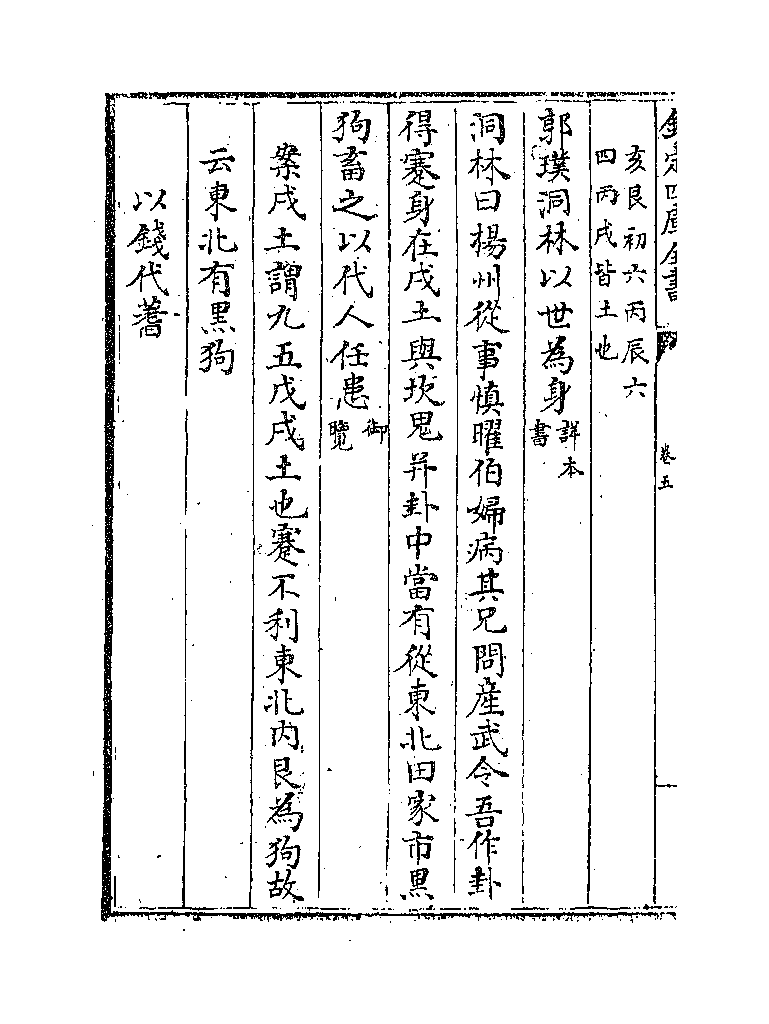 欽定四庫全書
卷五
亥艮初六丙辰六
四丙戌皆土也
郭璞洞林以世為身詳本書
洞林曰楊州從事慎曜伯婦病其兄問産武令吾作卦
得蹇身在戌土與坎鬼并卦中當有從東北田家市黒
狗畜之以代人任患御覽
案戌土謂九五戊戌土也蹇不利東北内艮為狗故
云東北有黒狗
以錢代蓍